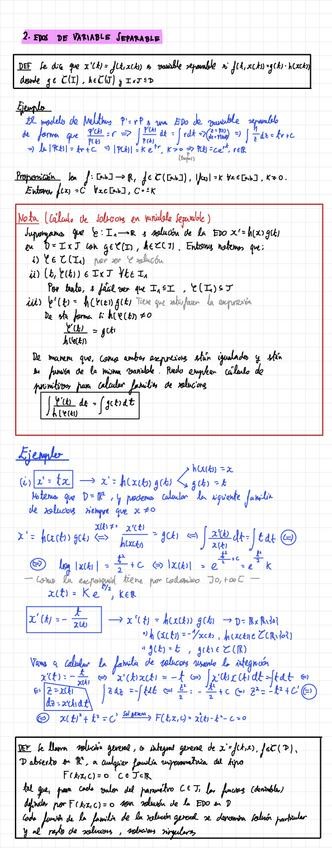 2. EDOS DE VARIABLE SEPARABLE
DEF Se dice que x'(t) = f(t,x(t)) es variable separable si f(t,x(t)) = g(t)·h(x(t))
donde g ∈ C(I), h ∈ C(J) y I×J = D
Ejemplo
El modelo de Malthus P' = rP es una EDO de variable separable
de forma que P'(t)/P(t) = r ⇒ ∫ P'(t)/P(t) dt = ∫ r dt ⇒
⇒ ln|P(t)| = tr + C ⇒ |P(t)| = K e^{rt}, K>0 ⇒ P(t) = c e^{rt}, c∈R
Proposición Sea f: [a,b] → R, f ∈ C([a,b]), |f(x)| = K ∀x∈[a,b], K>0.
Entonces f(x) = C ∀x∈[a,b], C = ±K
Nota (Cálculo de soluciones en variable separable)
Supongamos que φ: I₁ → R es solución de la EDO x' = h(x)g(t)
en D = I×J con g∈C(I), h∈C(J). Entonces tenemos que:
i) φ ∈ C¹(I₁) por ser φ solución
ii) (t, φ(t)) ∈ I×J ∀t∈I₁
Por tanto, es fácil ver que I₁ ⊆ I, φ(I₁) ⊆ J
iii) φ'(t) = h(φ(t)) g(t) Tiene que satisfacer la expresión
De esta forma si h(φ(t)) ≠ 0
φ'(t)/h(φ(t)) = g(t)
De manera que, como ambas expresiones están igualadas y están
en función de la misma variable. Puedo emplear cálculo de
primitivas para calcular familias de soluciones
∫ φ'(t)/h(φ(t)) dt = ∫ g(t) dt
Ejemplos
(i) x' = tx → x' = h(x(t)) g(t) h(x(t)) = x
g(t) = t
Notemos que D = R², y podemos calcular la siguiente familia
de soluciones siempre que x ≠ 0
x' = h(x(t)) g(t) ⇔ x'(t)/h(x(t)) = g(t) ⇔ ∫ x'(t)/x(t) dt = ∫ t dt ⇔
⇔ log|x(t)| = t²/2 + C ⇔ |x(t)| = e^{t²/2 + C} = e^{t²/2} K
— Como la exponencial tiene por codominio ]0,+∞[ —
x(t) = K e^{t²/2}, K∈R
x'(t) = - t/x(t) → x'(t) = h(x(t)) g(t) → D = R×R\{0}
h(x(t)) = -1/x(t), h(x(t)) ∈ C(R\{0})
g(t) = t, g(t) ∈ C(R)
Vamos a calcular la familia de soluciones usando la integración
x'(t) = - t/x(t) ⇔ x'(t)x(t) = -t ⇔ ∫ x'(t)x(t) dt = ∫ -t dt ⇔
⇔ z = x(t) dz = x'(t)dt ∫ z dz = -∫ t dt ⇔ z²/2 = - t²/2 + C ⇔ z² = -t² + C' ⇔
⇔ x(t)² + t² = C' F(t,x,c) = x²(t) - t² - C = 0
DEF Se llama solución general, o integral general de x' = f(t,x), f∈C(D),
D abierto en R², a cualquier familia uniparamétrica del tipo
F(t,x,c) = 0 C∈J⊂R
tal que, para cada valor del parámetro C∈J, las funciones (derivables)
definidas por F(t,x,c) = 0 son solución de la EDO en D
Cada función de la familia de la solución general se denomina solución particular
y al resto de soluciones, soluciones singulares